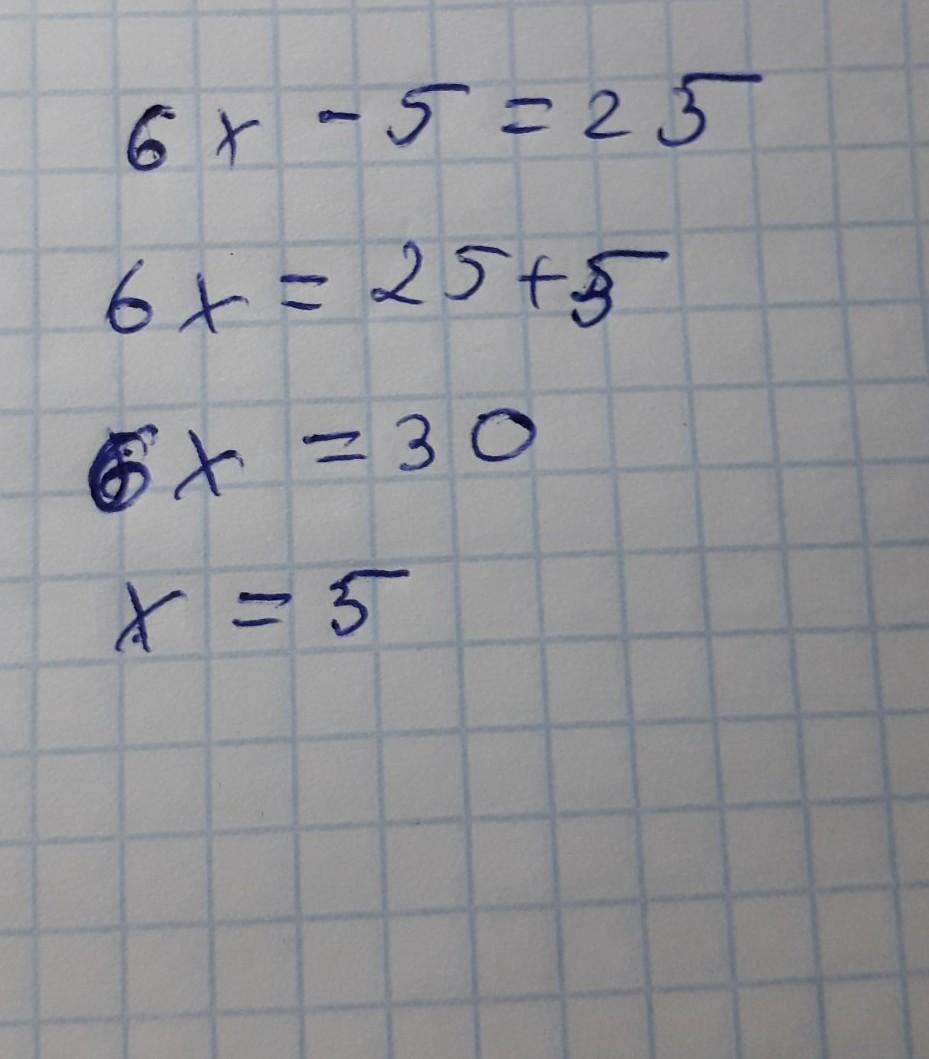 6x - 5 = 25
6x = 25 + 5
6x = 30
x = 5